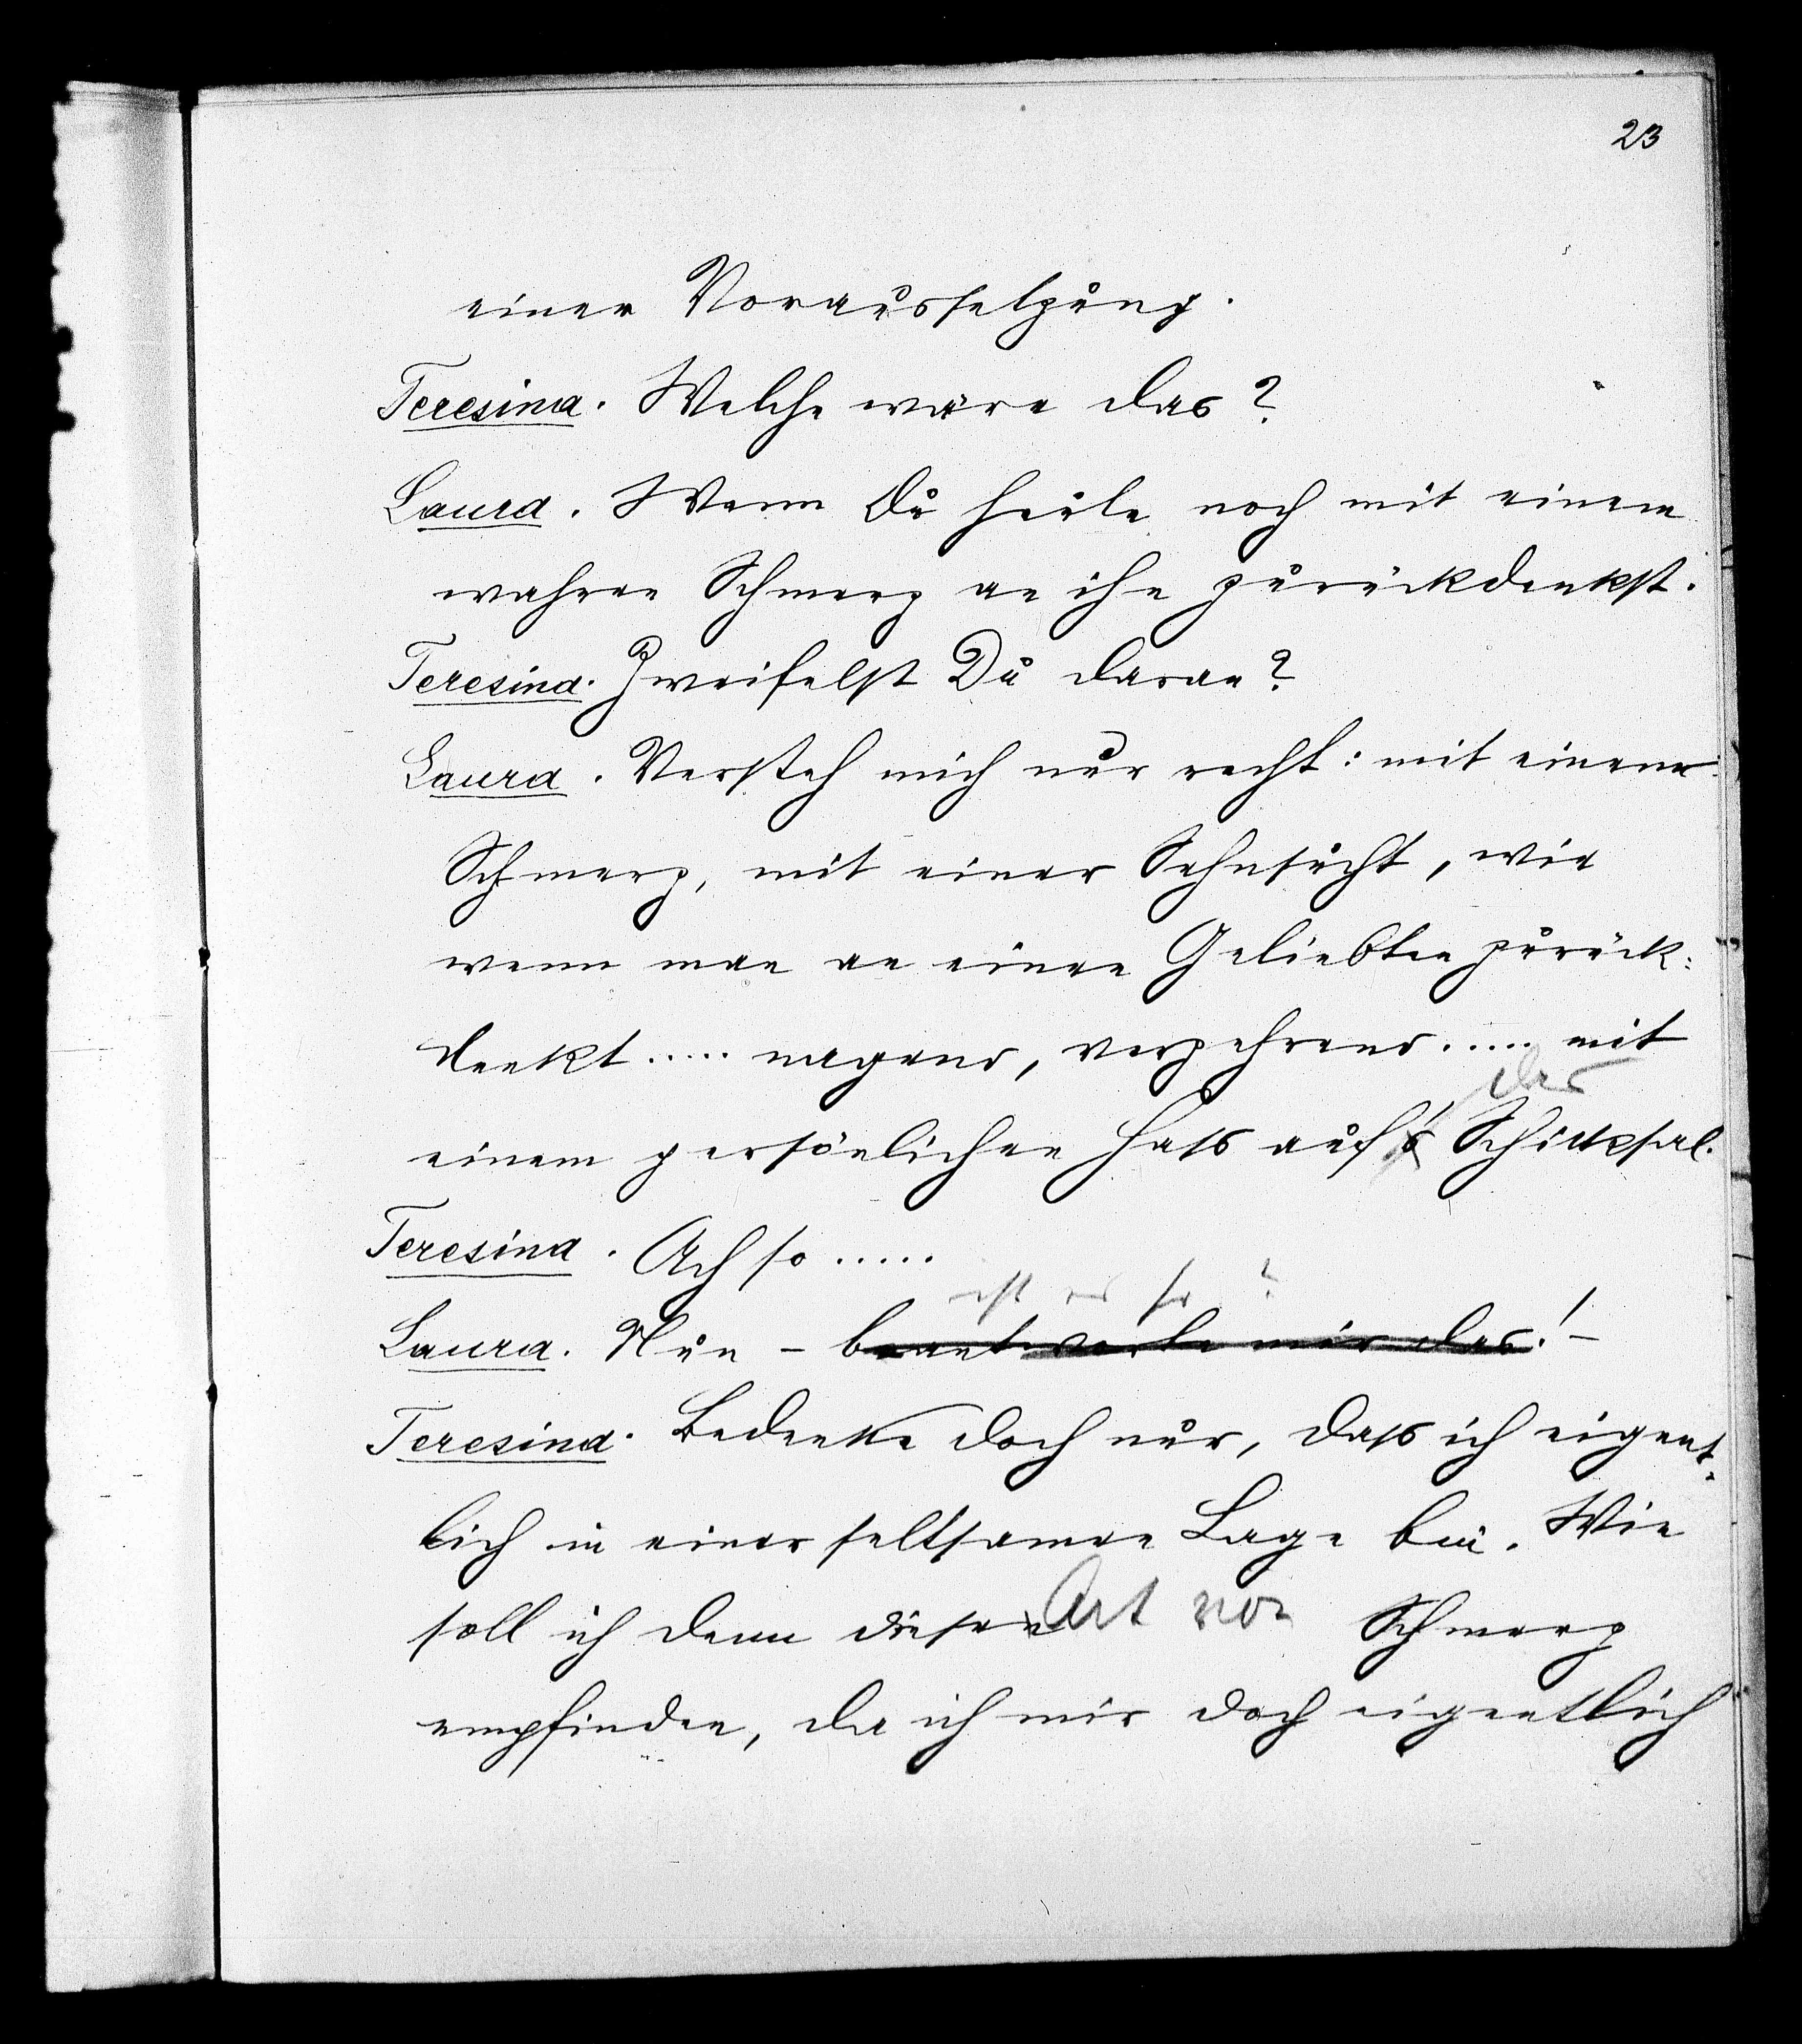 23
einer Voraussetzung.
Teresina. Welche wäre das?
Laura. Wenn Du heute noch mit einem
wahren Schmerz an ihn zurückdenkst.
Teresina. Zweifelst Du daran?
Laura. Versteh mich nur recht: mit einem
Schmerz, mit einer Sehnsucht, wie
wenn man an einen Geliebten zurück:
denkt ..... nagend, verzehrend ..... mit
das
einem persönlichen Hass auf's Schicksal.
Teresina. Ach so .....
ist es so?
Laura. Nun – beantworte mir das! –
Teresina. Bedenke doch nur, dass ich eigent:
lich in einer seltsamen Lage bin. Wie
soll ich denn diesen Art von Schmerz
empfinden, da ich mir doch eigentlich